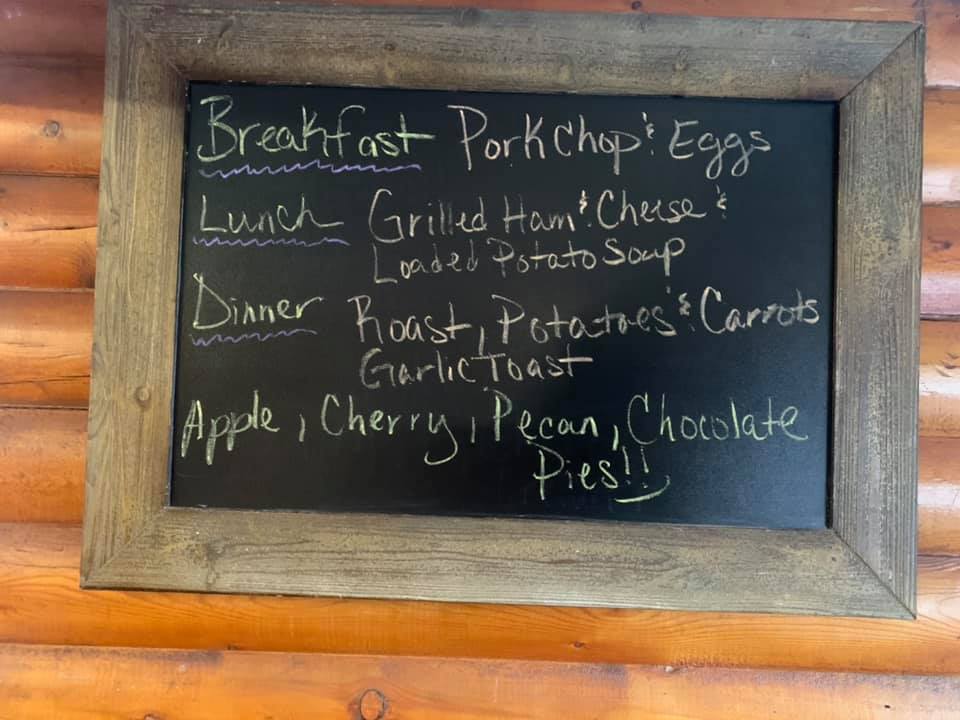 Breakfast Pork Chop & Eggs
Lunch Grilled Ham & Cheese &
Loaded Potato Soup
Dinner Roast, Potatoes & Carrots
Garlic Toast
Apple, Cherry, Pecan, Chocolate
Pies!!